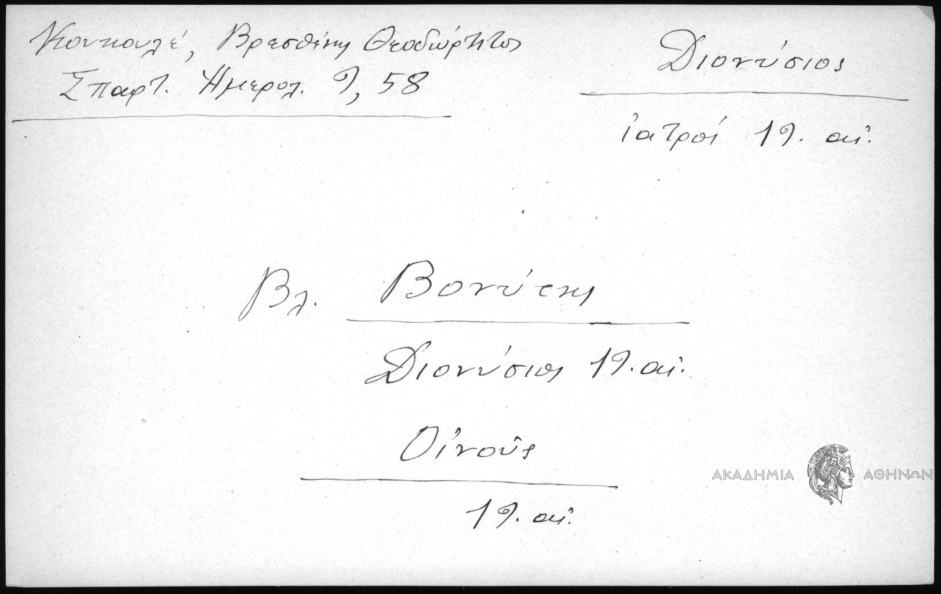 Κουκουλέ, Βρεσθένης Θεοδώρητος
Σπαρτ. Ημερολ. 9, 58
Διονύσιος
ἰατροί 19. αἰ.
Βλ. Βονύτης
Διονύσιος 19. αἰ.
Οἰνοῦς
19. αἰ.
ΑΚΑΔΗΜΙΑ ΑΘΗΝΩΝ